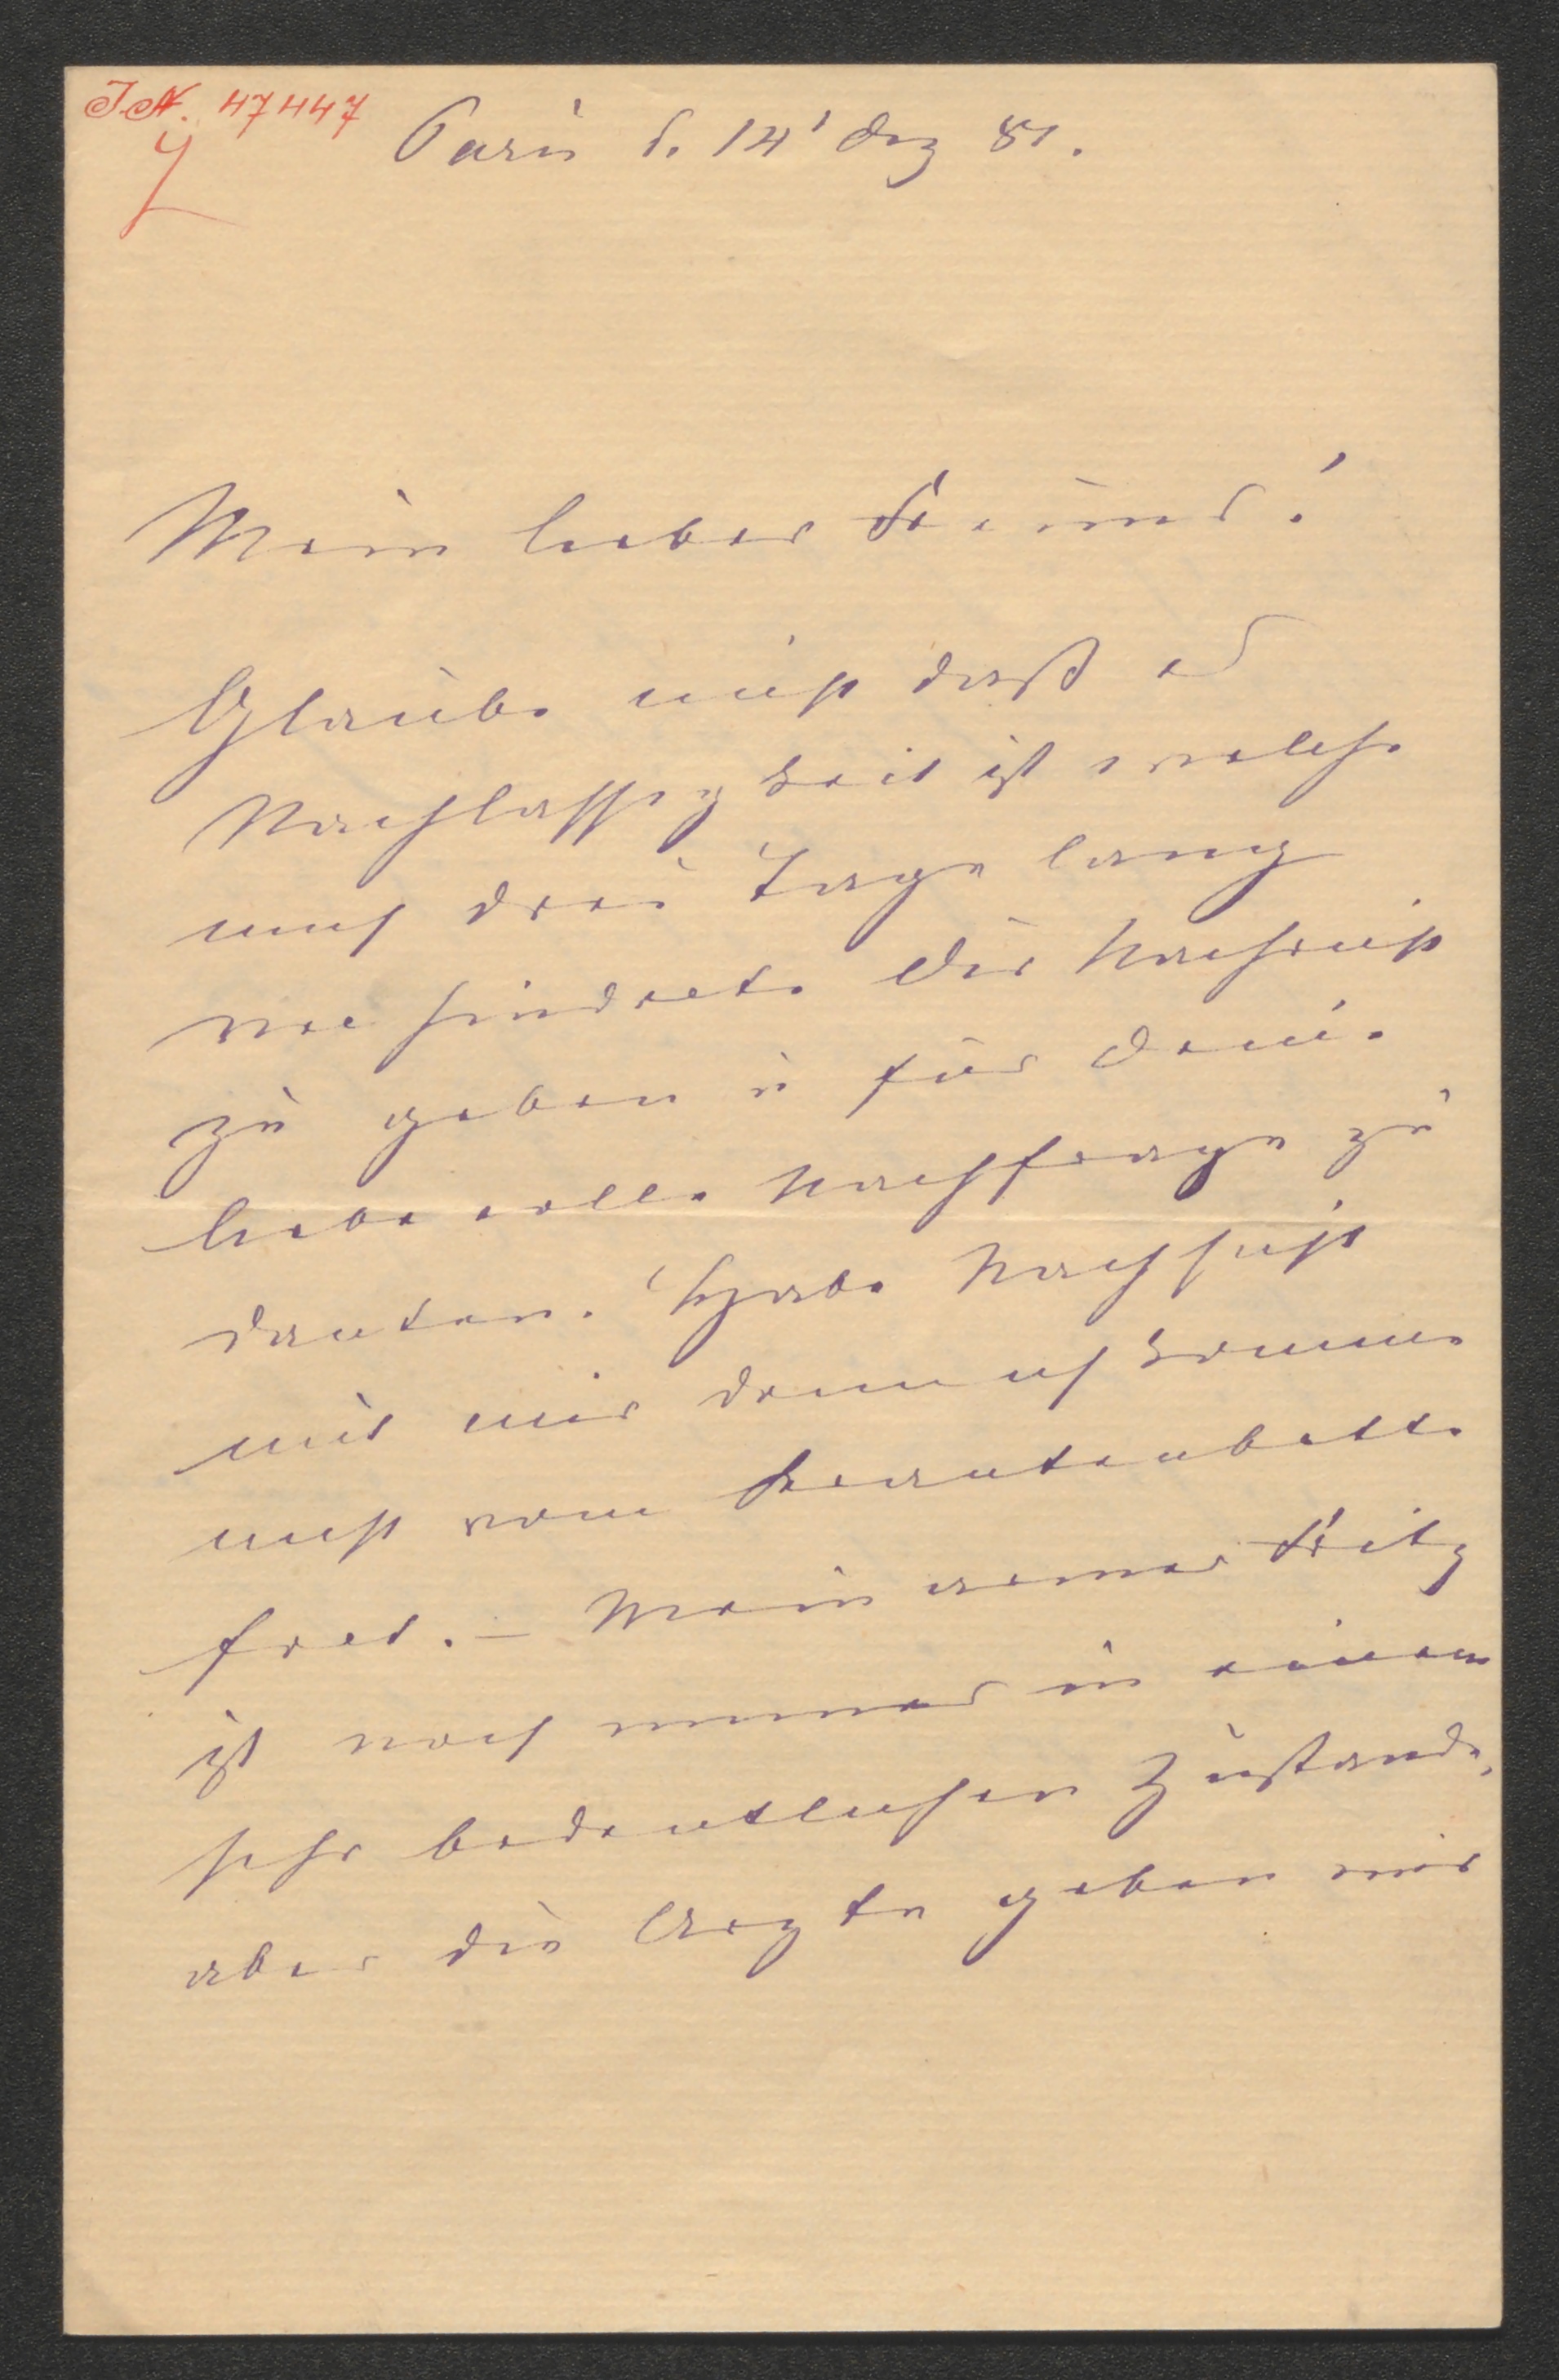 J.N. 47447
Paris d. 14' Dez 81.
Mein lieber Freund!
Glaube nicht daß es
Nachlassigkeit ist welche
mich drei Tage lang
verhinderte Dir Nachricht
zu geben u für Deine
liebevolle Nachfrage zu
danken. Habe Nachsicht
mit mir denn ich komme
nicht vom Krankenbette
fort. – Mein armer Fritz
ist noch immer in einem
sehr bedenklichen Zustande,
aber die Arzte geben mir